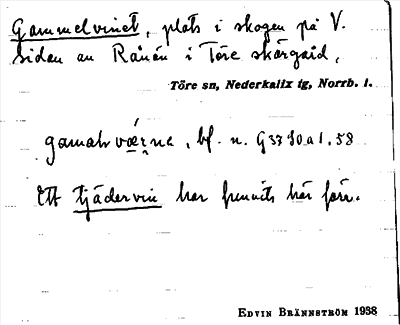 Gammelvinet, plats i skogen på V.
sidan av Rånön i Töre skärgård.
Töre sn, Nederkalix tg, Norrb. l.
bf. n. G 3790 a 1. 58
Ett tjädervin har funnits här förr.
EDVIN BRÄNNSTRÖM 1938